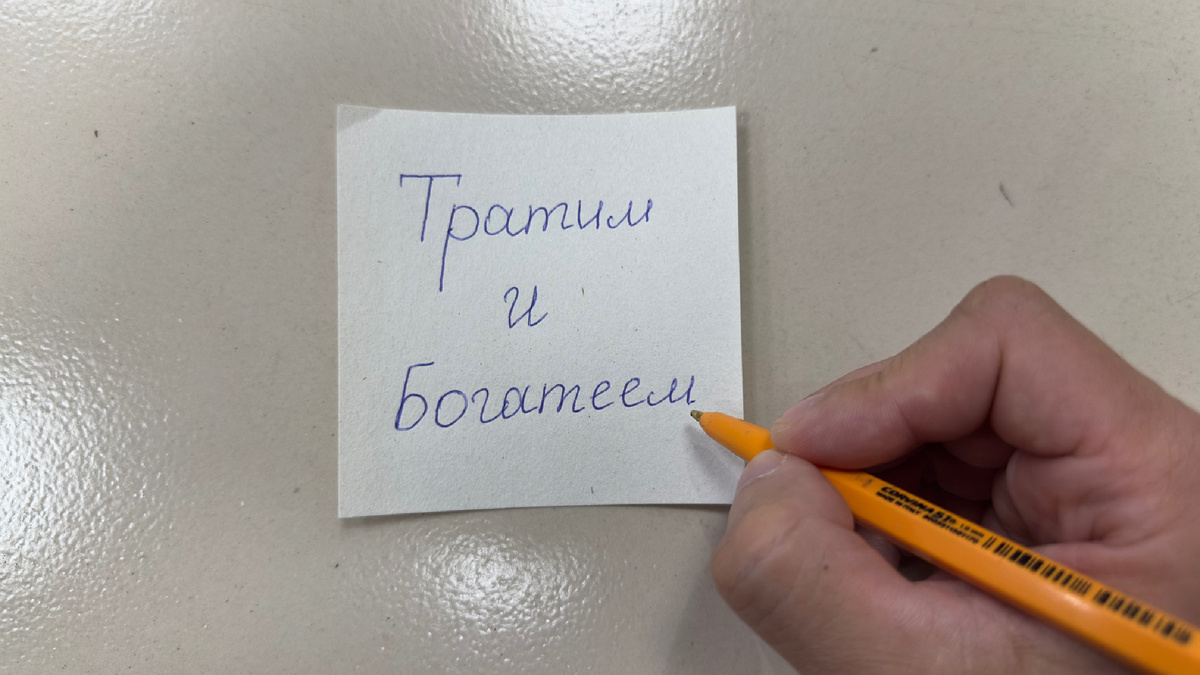 Тратим
и
Богатеем
CORVINA 51